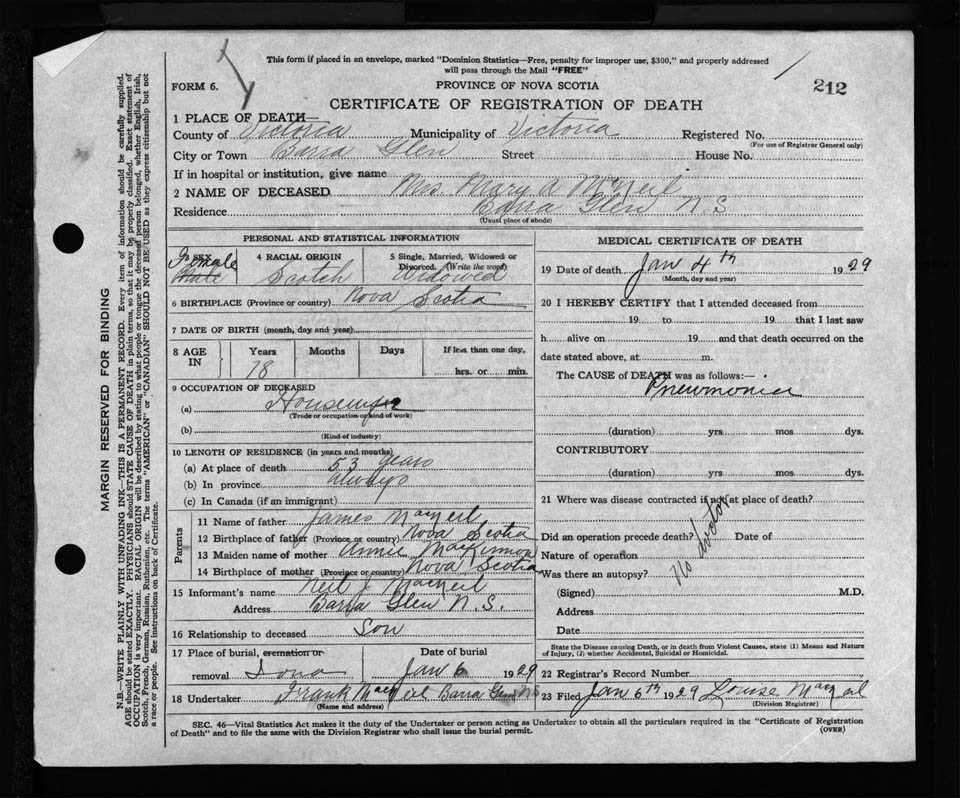 This form if placed in an envelope, marked "Dominion Statistics—Free, penalty for improper use, $300," and properly addressed
will pass through the Mail "FREE"
212
FORM 6.
PROVINCE OF NOVA SCOTIA
CERTIFICATE OF REGISTRATION OF DEATH
1 PLACE OF DEATH—
County of Victoria Municipality of Victoria Registered No.
(For use of Registrar General only)
City or Town Barra Glen Street House No.
If in hospital or institution, give name
2 NAME OF DECEASED Mrs. Mary A McNeil
Residence Barra Glen N.S
(Usual place of abode)
PERSONAL AND STATISTICAL INFORMATION
3 SEX Female Male
4 RACIAL ORIGIN Scotch
5 Single, Married, Widowed or Divorced. (Write the word) Widowed
6 BIRTHPLACE (Province or country) Nova Scotia
7 DATE OF BIRTH (month, day and year)
8 AGE IN Years Months Days If less than one day,
78 hrs. or min.
9 OCCUPATION OF DECEASED
(a) Housewife
(Trade or occupation or kind of work)
(b)
(Kind of industry)
10 LENGTH OF RESIDENCE (in years and months)
(a) At place of death 53 years
(b) In province always
(c) In Canada (if an immigrant)
Parents
11 Name of father James MacNeil
12 Birthplace of father (Province or country) Nova Scotia
13 Maiden name of mother Annie MacKinnon
14 Birthplace of mother (Province or country) Nova Scotia
15 Informant's name Neil J MacNeil
Address Barra Glen N.S.
16 Relationship to deceased Son
17 Place of burial, cremation or removal Iona Date of burial Jan 6 1929
18 Undertaker Frank MacNeil Barra Glen N S
(Name and address)
MEDICAL CERTIFICATE OF DEATH
19 Date of death Jan 4th 1929
(Month, day and year)
20 I HEREBY CERTIFY that I attended deceased from
19 to 19 that I last saw
h alive on 19 and that death occurred on the
date stated above, at m.
The CAUSE of DEATH was as follows:—
Pneumonia
(duration) yrs mos dys.
CONTRIBUTORY
(duration) yrs. mos. dys.
21 Where was disease contracted if not at place of death?
Did an operation precede death? Date of
Nature of operation
Was there an autopsy?
No doctor
(Signed) M.D.
Address
Date
State the Disease causing Death, or in death from Violent Causes, state (1) Means and Nature
of Injury, (2) whether Accidental, Suicidal or Homicidal.
22 Registrar's Record Number
23 Filed Jan 6th 1929 Louise MacNeil
(Division Registrar)
SEC. 46—Vital Statistics Act makes it the duty of the Undertaker or person acting as Undertaker to obtain all the particulars required in the "Certificate of Registration
of Death" and to file the same with the Division Registrar who shall issue the burial permit.
(OVER)
MARGIN RESERVED FOR BINDING
N.B.—WRITE PLAINLY WITH UNFADING INK—THIS IS A PERMANENT RECORD. Every item of information should be carefully supplied.
AGE should be stated EXACTLY. PHYSICIANS should STATE CAUSE OF DEATH in plain terms, so that it may be properly classified. Exact statement of
OCCUPATION is very important. RACIAL ORIGIN will be described by stating to what people or tongue the deceased person belonged, whether English, Irish,
Scotch, French, German, Russian, Ruthenian, etc. The terms "AMERICAN" or "CANADIAN" SHOULD NOT BE USED as they express citizenship but not
a race or people. See instructions on back of Certificate.